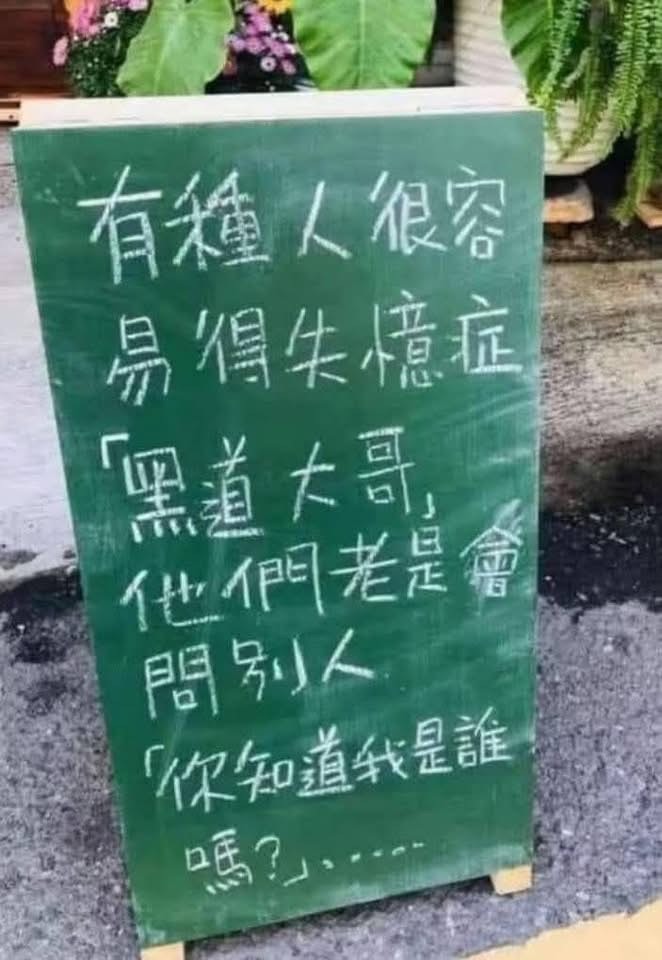 有種人很容
易得失憶症
「黑道大哥」
他們老是會
問別人
「你知道我是誰
嗎?」、·····